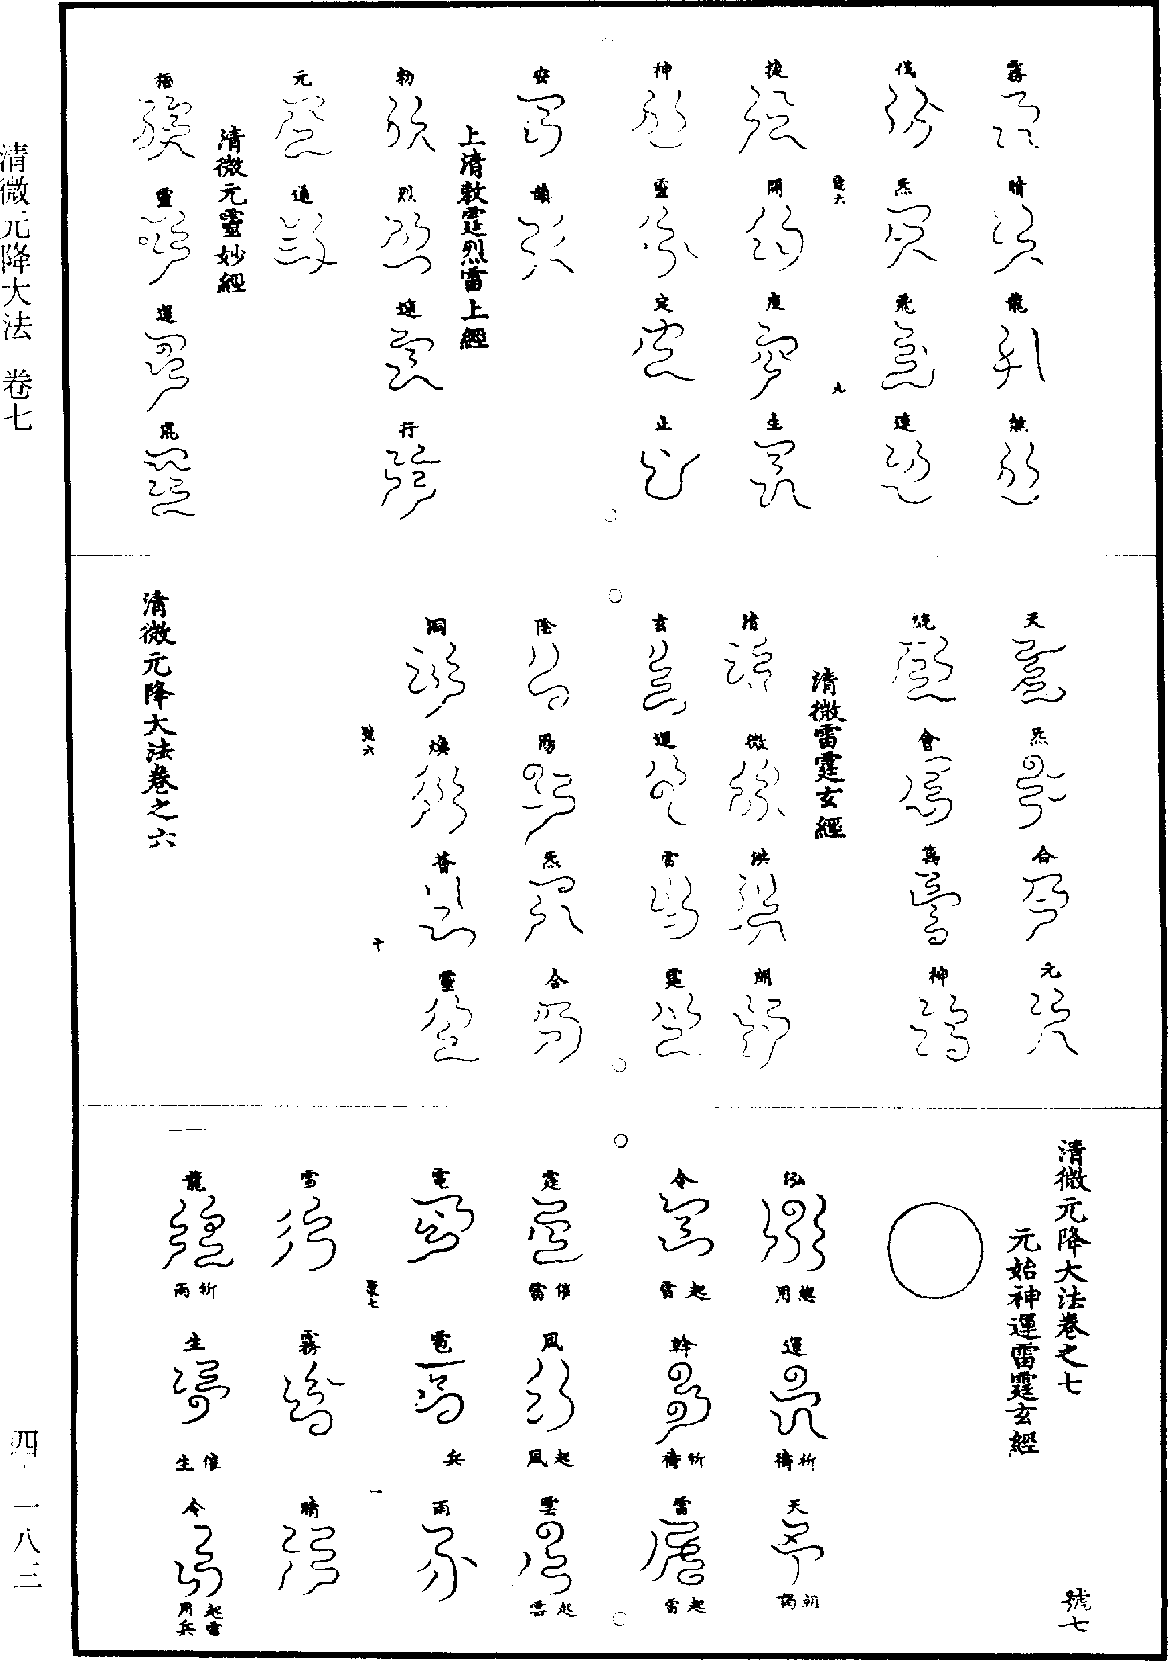 清微元降大法　卷七
霧晴龍無
伐炁飛連
號六　九
捷開度生
神靈定止
安鎮
上清敕霆烈雷上經
勅烈速行
元通
清微元靈妙經
樞靈運
天炁合元
統會萬神
清微雷霆玄經
清微朗
玄運雷霆
陰陽炁合
號六　十
洞煥普靈
清微元降大法卷之六
清微元降大法卷之七
號七
元始神運雷霆玄經
總用
運　祈禱
天　朝謁
令　起雷
幹　祈禱
雷　起雷
霆　催雷
風　起風
雲　起雲
電
雹　兵
雨
號七　一
雪
霧
晴
龍　祈雨
生　催生
令　起雷用兵
四一一八三